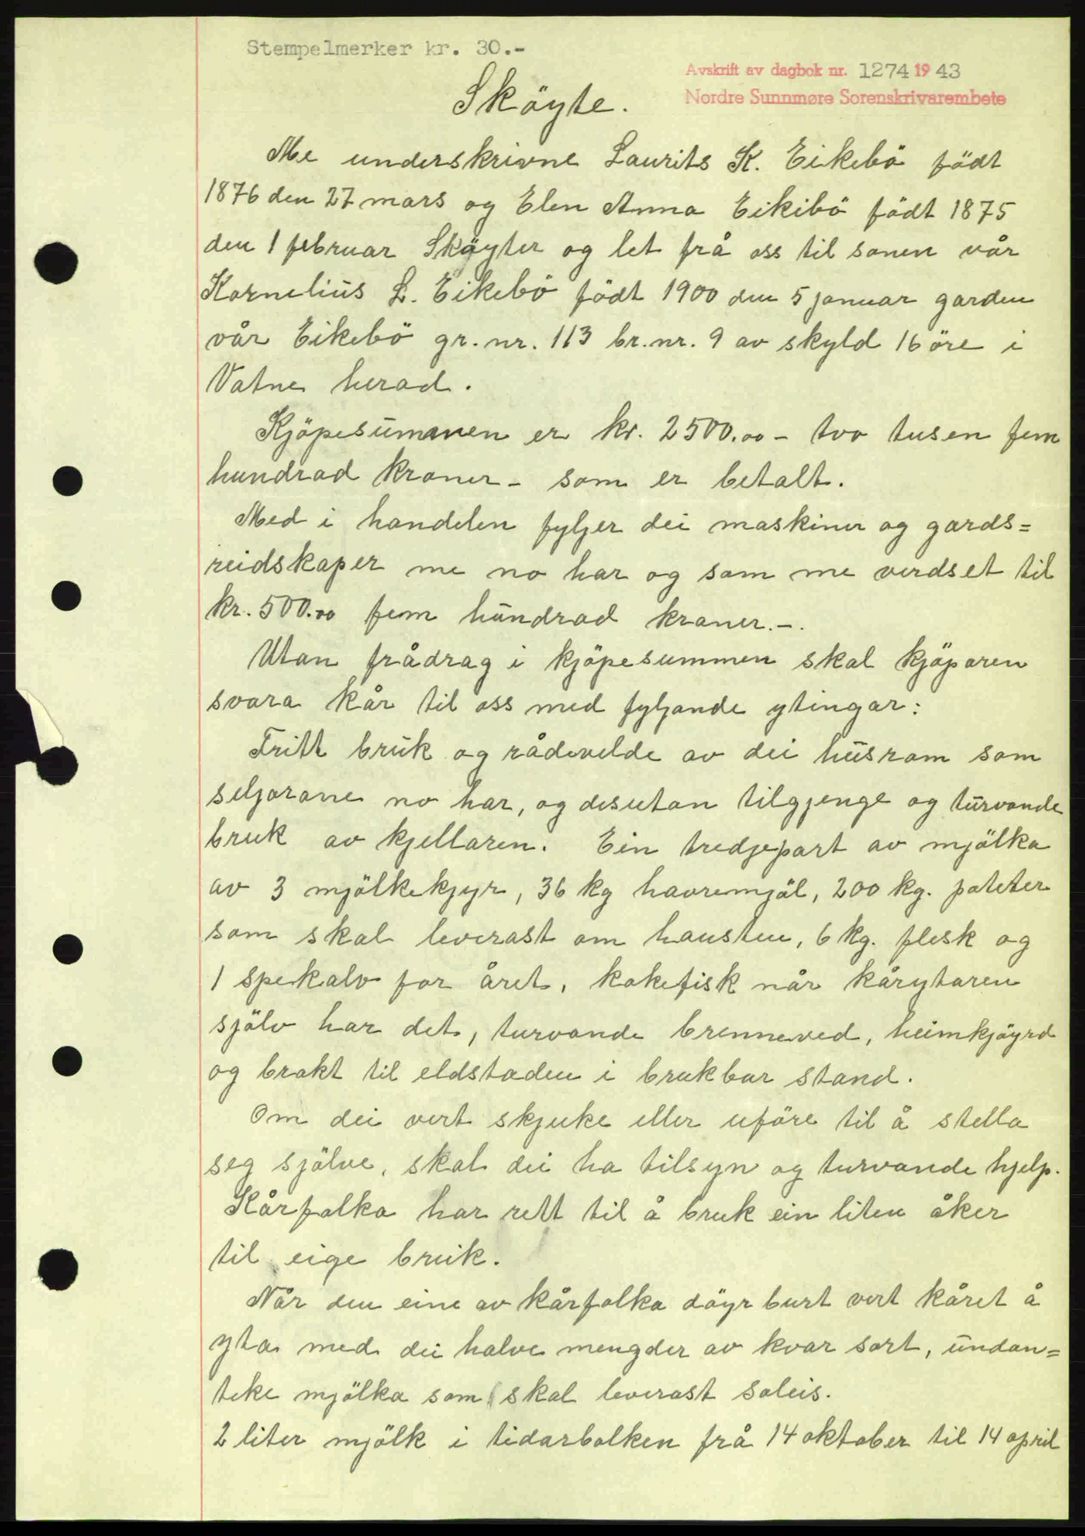 Stempelmerker kr. 30.-
Avskrift av dagbok nr. 1274 1943
Nordre Sunnmøre Sorenskrivarembete
Sköyte.
Me underskrivne Laurits K. Eikebö födt
1876 den 27 mars og Elen Anna Eikibö födt 1875
den 1 februar Sköyter og let frå oss til sonen vår
Kornelius L. Eikebö födt 1900 den 5 januar garden
vår Eikebö gr. nr. 113 br. nr. 9 av skyld 16 öre i
Vatne herad.
Kjöpesummen er kr. 2500.00 - tvo tusen fem
hundrad kroner - som er betalt.
Med i handelen fyljer dei maskiner og gards=
reidskaper me no har og som me verdset til
kr. 500.00 fem hundrad kroner.-.
Utan frådrag i kjöpesummen skal kjöparen
svara kår til oss med fyljande ytingar:
Fritt bruk og rådevelde av dei husrom som
seljarane no har, og desutan tilgjenge og turvande
bruk av kjellaren. Ein tredjepart av mjölka
av 3 mjölkekjyr, 36 kg havremjöl, 200 kg. poteter
som skal leverast om hausten, 6 kg. flesk og
1 spekalv for året, kokefisk når kårytaren
sjölv har det, turvande brenneved, heimkjöyrd
og brakt til eldstaden i brukbar stand.
Om dei vert skjuke eller uföre til å stella
seg sjölve, skal dei ha tilsyn og turvande hjelp.
Kårfolka har rett til å bruk ein liten åker
til eige bruk.
Når den eine av kårfolka döyr burt vert kåret å
yta med dei halve mengder av kvar sort, undan=
teke mjölka som skal leverast soleis.
2 liter mjölk i tidarbolken frå 14 oktober til 14 april